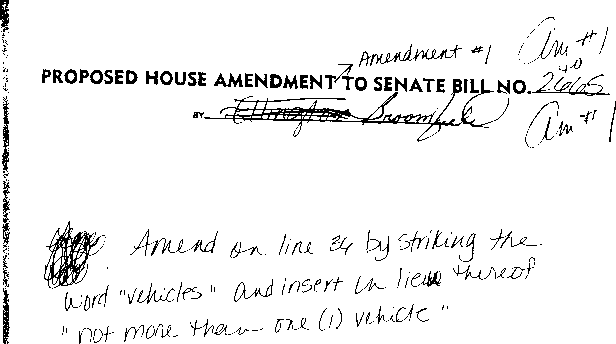 Amendment #1
Am #1
to
PROPOSED HOUSE AMENDMENT TO SENATE BILL NO. 2665
BY Ellington Broomfield
Am #1
Amend on line 34 by striking the
word "vehicles" and insert in lieu thereof
"not more than one (1) vehicle"